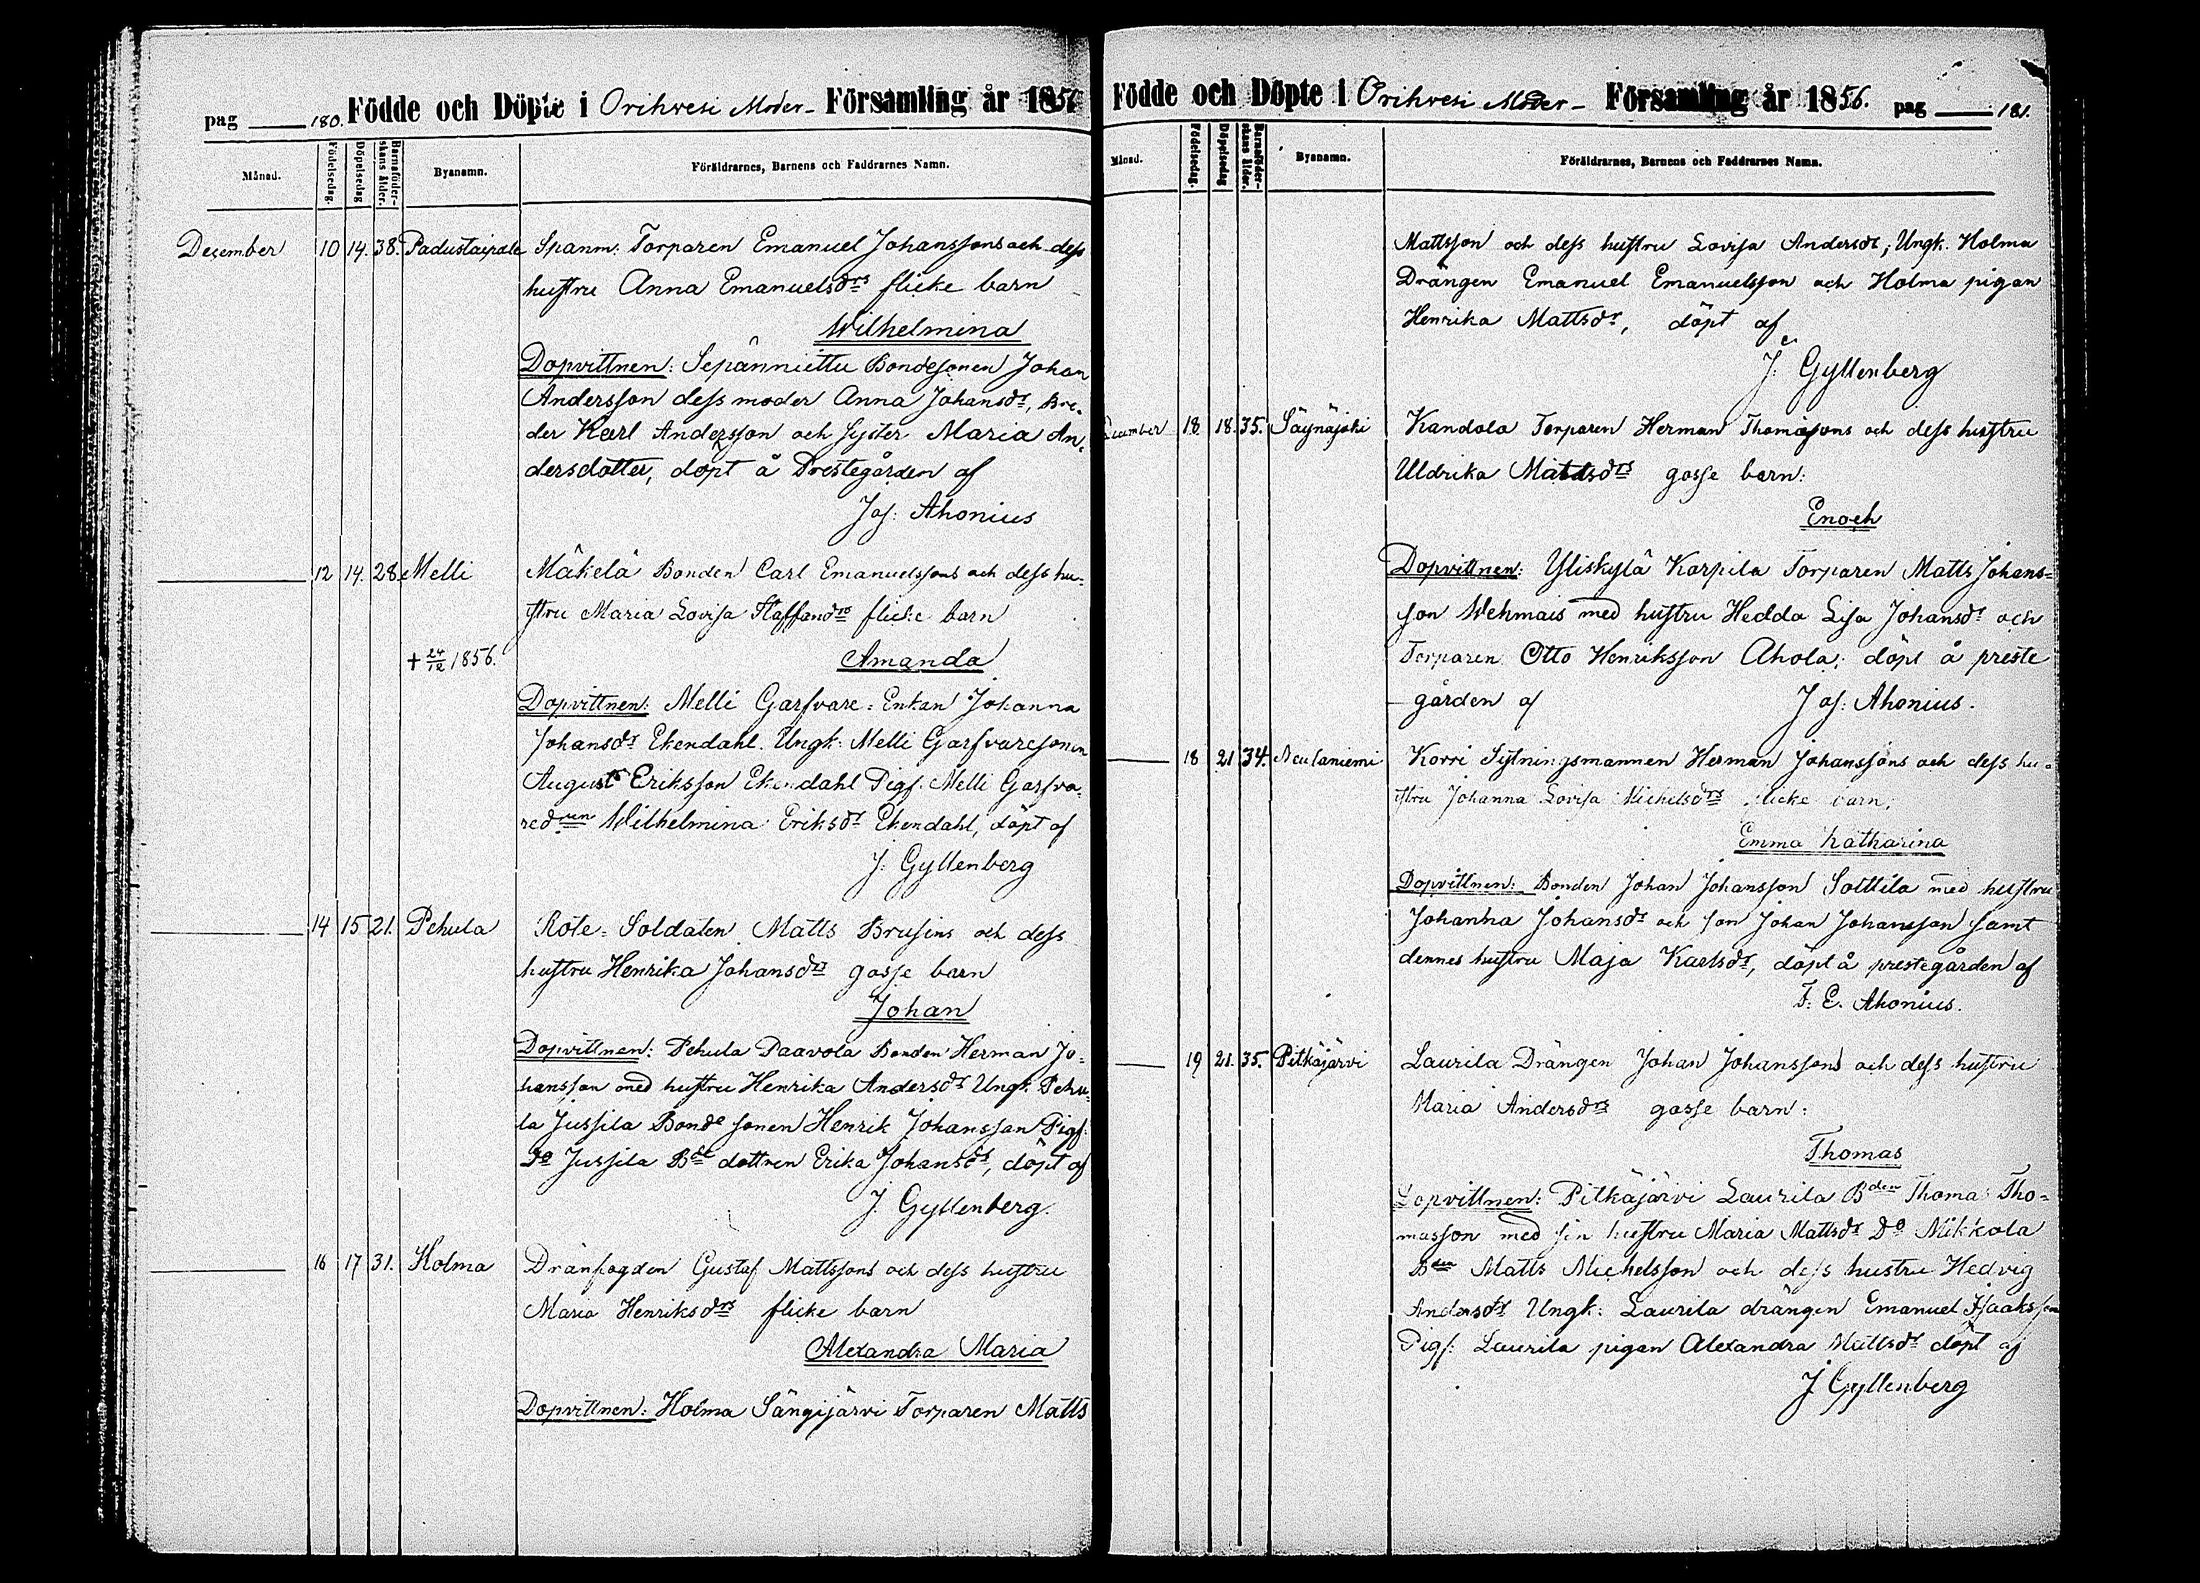 pag 180. Födde och Döpte i Orihvesi Moder- Församling år 1856
Månad. Födelsedag. Döpelsedag Barnaföderskans ålder. Byanamn. Föräldrarnes, Barnens och Faddrarnes Namn.
December 10 14. 38. Padustaipale Spanm: Torparen Emanuel Johanssons och dess
hustru Anna Emanuelsdrs flicke barn
Wilhelmina
Dopvittnen: Sepänniettu Bondesonen Johan
Andersson dess moder Anna Johansdr, Bro-
der Karl Andersson och syster Maria An-
dersdotter, döpt å Prestegården af
Jos: Ahonius
12 14. 28. Melli Mäkelä Bonden Carl Emanuelssons och dess hu-
stru Maria Lovisa Staffansdrs flicke barn
+ 24/12 1856. Amanda
Dopvittnen: Melli Garfvare-Enkan Johanna
Johansdr Ekendahl. Ungk: Melli Garfvaresonen
August Eriksson Ekendahl Pigf. Melli Garfva-
redren Wilhelmina Eriksdr Ekendahl, döpt af
J. Gyllenberg
14 15 21. Pehula Rote-Soldaten Matts Brusins och dess
hustru Henrika Johansdrs gosse barn
Johan
Dopvittnen: Pehula Paavola Bonden Herman Jo-
hansson med hustru Henrika Andersdr Ungk. Pehu-
la Jussila Bonde sonen Henrik Johansson Pigf.
Do Jussila Bde dottren Erika Johansdr, döpt af
J. Gyllenberg.
16 17 31. Holma Dränfogden Gustaf Mattssons och dess hustru
Maria Henriksdrs flicke barn
Alexandra Maria
Dopvittnen: Holma Sängijärvi Torparen Matts
Födde och Döpte i Orihvesi Moder- Församling år 1856. pag 181.
Månad. Födelsedag. Döpelsedag Barnaföderskans ålder. Byanamn. Föräldrarnes, Barnens och Faddrarnes Namn.
Mattsson och dess hustru Lovisa Andersdr, Ungk. Holma
Drängen Emanuel Emanuelsson och Holma pigan
Henrika Mattsdr, döpt af
J. Gyllenberg
December 18. 18. 35. Säynäjoki Kandola Torparen Herman Thomassons och dess hustru
Uldrika Mattsdrs gosse barn:
Enoch
Dopvittnen: Yliskylä Karpila Torparen Matts Johans-
son Wehmais med hustru Hedda Lisa Johansdr och
Torparen Otto Henriksson Ahola; döpt å preste
gården af Jos: Ahonius.
18 21 34. Neulaniemi Korri Sytningsmannen Herman Johanssons och dess hu-
stru Johanna Lovisa Michelsdrs flicke barn,
Emma Katharina
Dopvittnen: Bonden Johan Johansson Solttila med hustru
Johanna Johansdr och son Johan Johansson samt
dennes hustru Maja Karlsdr, döpt å prestegården af
F. E. Ahonius.
19 21. 35. Pitkäjärvi Laurila Drängen Johan Johanssons och dess hustru
Maria Andersdrs gosse barn:
Thomas
Dopvittnen: Pitkäjärvi Laurila Bden Thomas Tho-
masson med sin hustru Maria Mattsdr Do Mikkola
Bden Matts Michelsson och dess hustru Hedvig
Andersdr Ungk: Laurila drängen Emanuel Isaaksson
Pigf: Laurila pigan Alexandra Mattsdr döpt af
J Gyllenberg